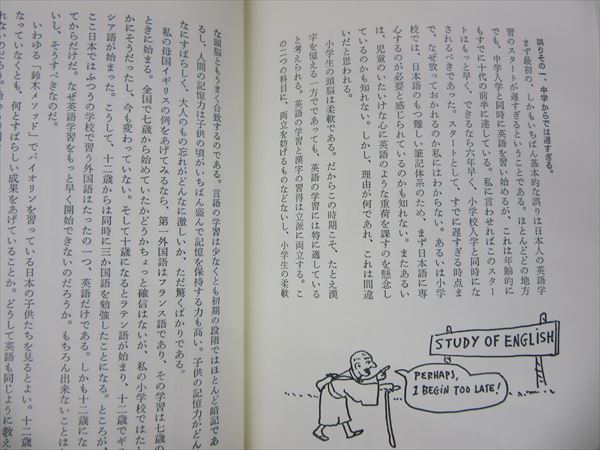 誤りその一、中学からでは遅すぎる。
まず最初の、しかもいちばん基本的な誤りは日本人の英語学
習のスタートが遅すぎるということである。ほとんどどの地方
でも、中学入学と同時に英語を習い始めるが、これは年齢的に
もすでに十代の前半に達している。私に言わせればこのスター
トはもっと早く、できるなら六年早く、小学校入学と同時にな
されるべきであった。スタートとして、すでに遅すぎる時点ま
で、なぜ放っておかれるのか私にはわからない。あるいは小学
校では、日本語のもつ難しい筆記体系のため、まず日本語に専
心するのが必要と感じられているのかも知れない。またあるい
は、児童のいたいけな心に英語のような重荷を課すのを懸念し
ているのかも知れない。しかし、理由が何であれ、これは間違
いだと思われる。
小学生の頭脳は柔軟である。だからこの時期こそ、たとえ漢
字を憶える一方でであっても、英語の学習には特に適している
と考えられる。英語の学習と漢字の習得は立派に両立する。こ
の二つの科目に、両立を妨げるものなどないし、小学生の柔軟
STUDY OF ENGLISH
PERHAPS,
I BEGIN TOO LATE!
な頭脳ともうまく合致するのである。言語の学習は少なくとも初期の段階ではほとんど暗記であ
るし、人間の記憶力は子供の頃がいちばん盛んで記憶を保持する力も高い。子供の記憶力がどん
なにすばらしく、大人のもの忘れがどんなに激しいか、ただ驚くばかりである。
私の母国イギリスの例をあげてみるなら、第一外国語はフランス語であり、その学習は七歳の
ときに始まる。全国で七歳から始めていたかどうかちょっと確信はないが、私の小学校ではたし
かにそうだったし、今も変わっていない。そして十歳になるとラテン語が始まり、十二歳でギリ
シア語が始まった。こうして、十二歳からは同時に三か国語を勉強したことになる。ところが、
ここ日本ではふつうの学校で習う外国語はたったの一つ、英語だけである。しかも十二歳にな
てからだけだ。なぜ英語学習をもっと早く開始できないのだろうか。もちろん出来ないことは
いし、そうすべきなのだ。
いわゆる「鈴木メソッド」でバイオリンを習っている日本の子供たちを見るとよい。十二歳
なっていなくとも、何とすばらしい成果をあげていることか。どうして英語も同じように教え